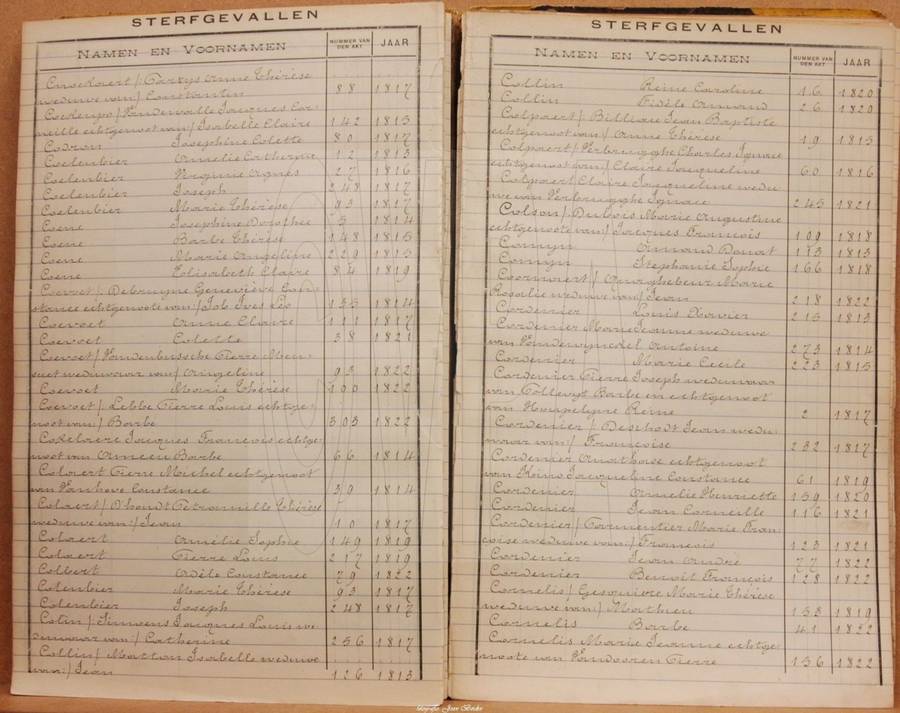 STERFGEVALLEN
NAMEN EN VOORNAMEN NUMMER VAN DEN AKT JAAR
Cnockaert /: Tartys Anne Thérèse
weduwe van / Constantin 88 1817
Vandewalle Jacques Cor-
neille echtgenoot van / Isabelle Claire 142 1813
Codron Josephine Colette 80 1817
Coelenbier Amelie Catherine 12 1813
Coelenbier Virginie Agnès 27 1816
Coelenbier Joseph 248 1817
Coelenbier Marie Thérèse 93 1817
Coene Josephine Dorothee 5 1814
Coene Barbe Thérèse 148 1815
Coene Marie Angeline 229 1815
Coene Elisabeth Claire 84 1819
Coevoet /: Debruyne Geneviève Con-
stance echtgenoote van / Job Ives Léo 135 1814
Coevoet Anne Claire 111 1817
Coevoet Colette 38 1821
Coevoet / Vandenbussche Pierre
weduwaar van / Angeline 93 1822
Coevoet Marie Thérèse 190 1822
Coevoet /: Lebbe Pierre Louis echtge-
noot van / Barbe 303 1822
Cokelaere Jacques François echtge-
noot van Barbe 66 1814
Colaert Pierre Michel echtgenoot
van Vanhove Constance 39 1814
Colaert / Dhondt Pétronille Thérèse
weduwe van / Jean 10 1817
Colaert Amélie Sophie 149 1819
Colaert Pierre Louis 217 1819
Colbert Adèle Constance 79 1822
Colenbier Marie Thérèse 93 1817
Colenbier Joseph 248 1817
Colin /: Simoens Jacques Louis we-
duwaar van / Catherine 256 1817
Collin / Matton Isabelle weduwe
van / Jean 126 1813
STERFGEVALLEN
NAMEN EN VOORNAMEN NUMMER VAN DEN AKT JAAR
Collin Reine Caroline 16 1820
Collin Fidèle Armand 26 1820
Colpaert / Billiau Jean Baptiste
echtgenoot van / Anne Thérèse 19 1815
Colpaert / Verbrugghe Charles Ignace
echtgenoot van / Claire Jacqueline 60 1816
Colpaert Claire Jacqueline wedu-
we van Verbrugghe Ignace 245 1821
Colson /: Dubois Marie Augustine
echtgenoote van / Jacques François 109 1818
Comyn Armand Donat 113 1813
Comyn Stephanie Sophie 166 1818
Marie
Rosalie weduwe van / Jean 218 1822
Cordenier Louis Xavier 215 1813
Cordenier Marie Jeanne weduwe
van Vandewynckel Antoine 273 1814
Cordenier Marie Cecile 223 1815
Cordenier Pierre Joseph weduwaar
van Barbe en echtgenoot
van Houpelyne Reine 2 1817
Cordenier / Deschodt Jean wedu-
waar van / Françoise 232 1817
Cordenier Anathase echtgenoot
van Jacqueline Constance 61 1819
Cordenier Amelie Henriette 159 1820
Cordenier Jean Corneille 116 1821
Cordenier / Parmentier Marie Fran-
çoise weduwe van / François 123 1821
Cordenier Jean André 77 1822
Cordenier Benoit François 128 1822
Cornelis / Gesquiere Marie Thérèse
weduwe van / Mathieu 153 1819
Cornelis Barbe 41 1822
Cornelis Marie Jeanne echtge-
noote van Vandooren Pierre 136 1822